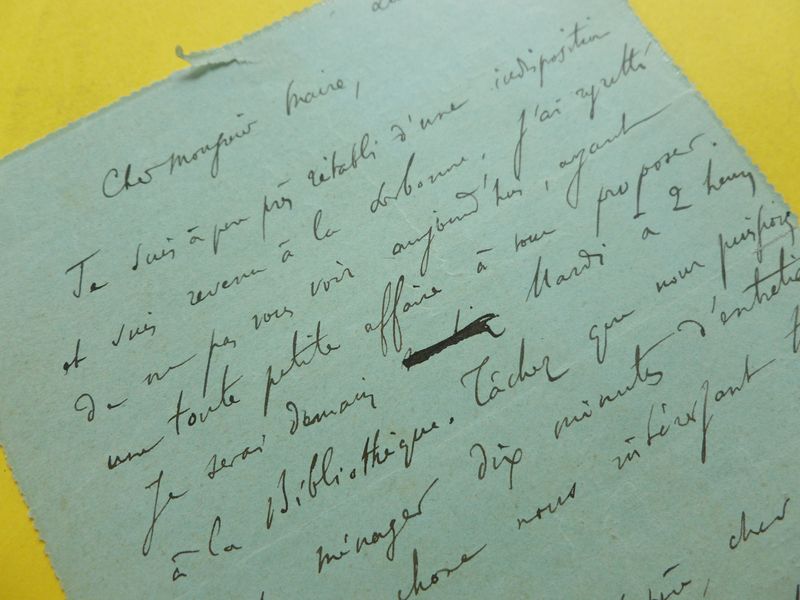 Cher Monsieur Maire,
Je suis à peu près rétabli d'une indisposition
et suis revenu à la Sorbonne. J'ai regretté
de ne pas vous voir aujourd'hui, ayant
une toute petite affaire à vous proposer.
Je serai demain Mardi à 2 heures
à la Bibliothèque. Tâchez que nous puissions
ménager dix minutes d'entretien
chose nous intéressant
cher